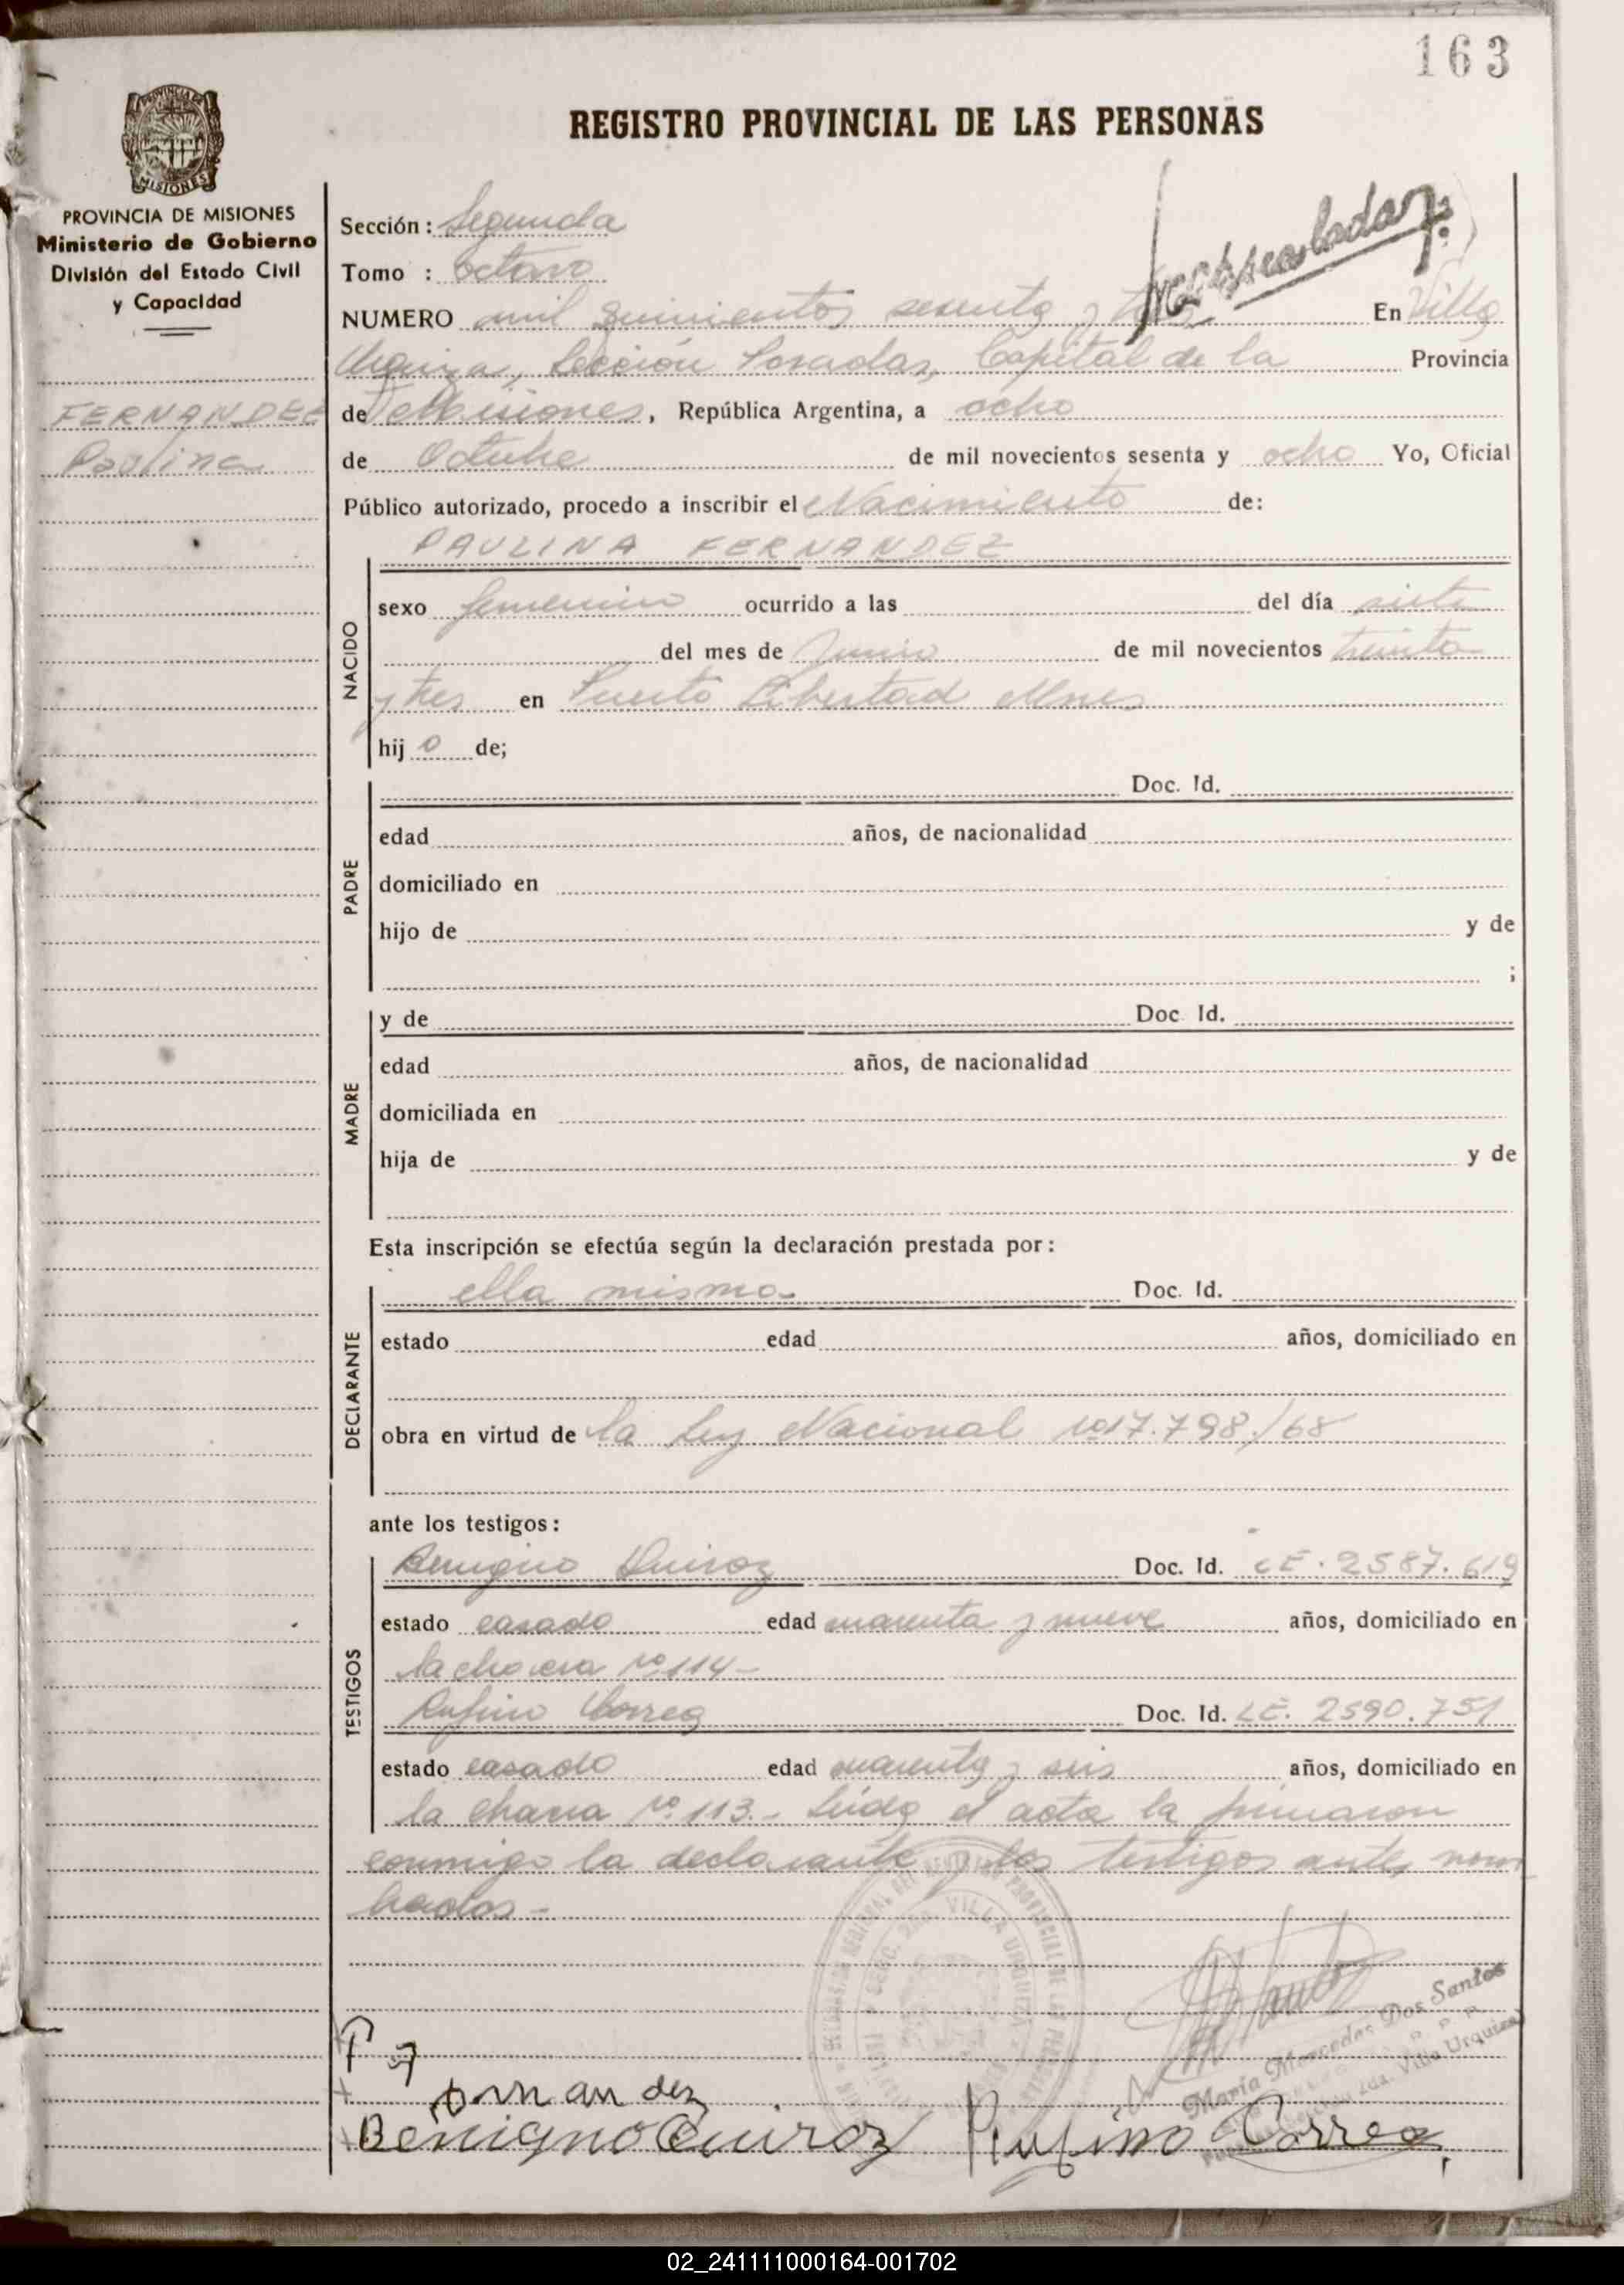 163
REGISTRO PROVINCIAL DE LAS PERSONAS
PROVINCIA DE MISIONES
Ministerio de Gobierno
División del Estado Civil
y Capacidad
FERNANDEZ
Paulina
Sección: Segunda
Tomo : octavo
NUMERO mil quinientos sesenta y tres En Villa
Urquiza, Sección Posadas, Capital de la Provincia
de Misiones, República Argentina, a ocho
de Octubre de mil novecientos sesenta y ocho Yo, Oficial
Público autorizado, procedo a inscribir el Nacimiento de:
PAULINA FERNANDEZ
NACIDO
sexo femenino ocurrido a las del día siete
del mes de Junio de mil novecientos treinta
y tres en Puerto Libertad Mnes
hij o de;
PADRE
Doc. Id.
edad años, de nacionalidad
domiciliado en
hijo de y de
;
MADRE
y de Doc. Id.
edad años, de nacionalidad
domiciliada en
hija de y de
Esta inscripción se efectúa según la declaración prestada por:
DECLARANTE
ella misma Doc. Id.
estado edad años, domiciliado en
obra en virtud de la Ley Nacional nº17.798./68
ante los testigos:
TESTIGOS
Benigno Quiroz Doc. Id. LE. 2587.619
estado casado edad cuarenta y nueve años, domiciliado en
la chacra nº 114-
Rufino Correa Doc. Id. LE. 2590.751
estado casado edad cuarenta y seis años, domiciliado en
la chacra nº 113.- Leída el acta la firmaron
conmigo la declarante y los testigos antes nom
brados-
VILLA URQUIZA
María Mercedes Dos Santos
2da. Villa Urquiza
P
Benigno Quiroz Rufino Correa
02_241111000164-001702